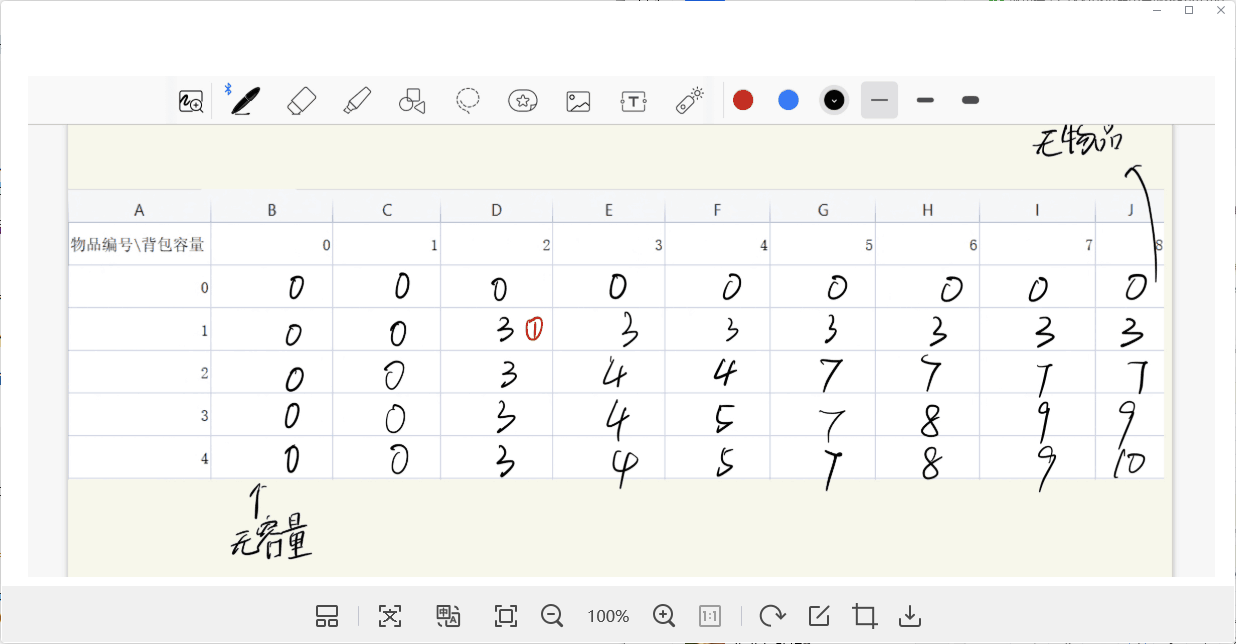 无物品
A B C D E F G H I J
物品编号\背包容量 0 1 2 3 4 5 6 7 8
0 0 0 0 0 0 0 0 0 0
1 0 0 3 ① 3 3 3 3 3 3
2 0 0 3 4 4 7 7 7 7
3 0 0 3 4 5 7 8 9 9
4 0 0 3 4 5 7 8 9 10
无容量
100%
1:1